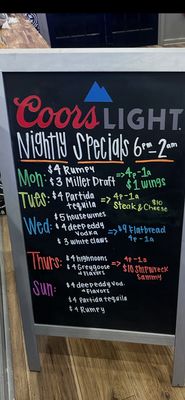 Coors LIGHT
Nightly Specials 6pm-2am
Mon: $4 Rumpy
$3 Miller Draft
⇒ 4p-1a
$1 wings
Tues: $4 Partida
tequila
⇒ 4p-1a
Steak & Cheese $10
$5 housewines
Wed: $4 deep eddy
vodka
$3 white claws
⇒ $9 Flatbread
4p-1a
Thurs: $4 highnoons
$4 Greygoose
+ flavors
⇒ 4p-1a
$10 Shipwreck
Sammy
Sun: $4 deep eddy vod.
+ flavors
$4 Partida tequila
$4 Rumpy